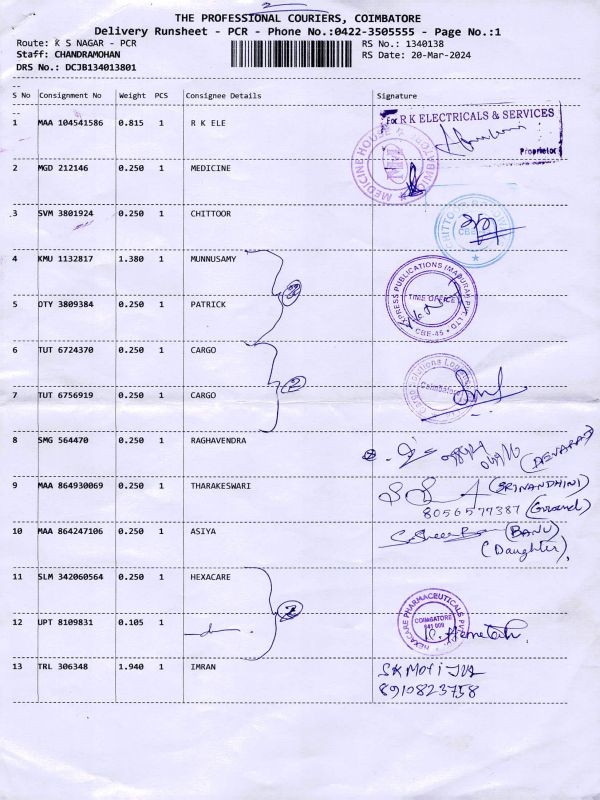 2
THE PROFESSIONAL COURIERS, COIMBATORE
Delivery Runsheet - PCR - Phone No.:0422-3505555 - Page No.:1
Route: K S NAGAR - PCR RS No.: 1340138
Staff: CHANDRAMOHAN RS Date: 20-Mar-2024
DRS No.: DCJB134013801
S No Consignment No Weight PCS Consignee Details Signature
1 MAA 104541586 0.815 1 R K ELE For R K ELECTRICALS & SERVICES
Proprietor
2 MGD 212146 0.250 1 MEDICINE MEDICINE HOUSE
3 SVM 3801924 0.250 1 CHITTOOR
4 KMU 1132817 1.380 1 MUNNUSAMY EXPRESS PUBLICATIONS (MADURAI) PVT. LTD
TIME OFFICE
CBE-45
5 DTY 3809384 0.250 1 PATRICK
6 TUT 6724370 0.250 1 CARGO
Coimbatore
7 TUT 6756919 0.250 1 CARGO
2
8 SMG 564470 0.250 1 RAGHAVENDRA
9 MAA 864930069 0.250 1 THARAKESWARI (SRINANDHINI)
8056577387 (Ground)
10 MAA 864247106 0.250 1 ASIYA (BANU)
(Daughter)
11 SLM 342060564 0.250 1 HEXACARE HEXACARE PHARMACEUTICALS PVT
COIMBATORE
641 009
12 UPT 8109831 0.105 1
13 TRL 306348 1.940 1 IMRAN
8910823758